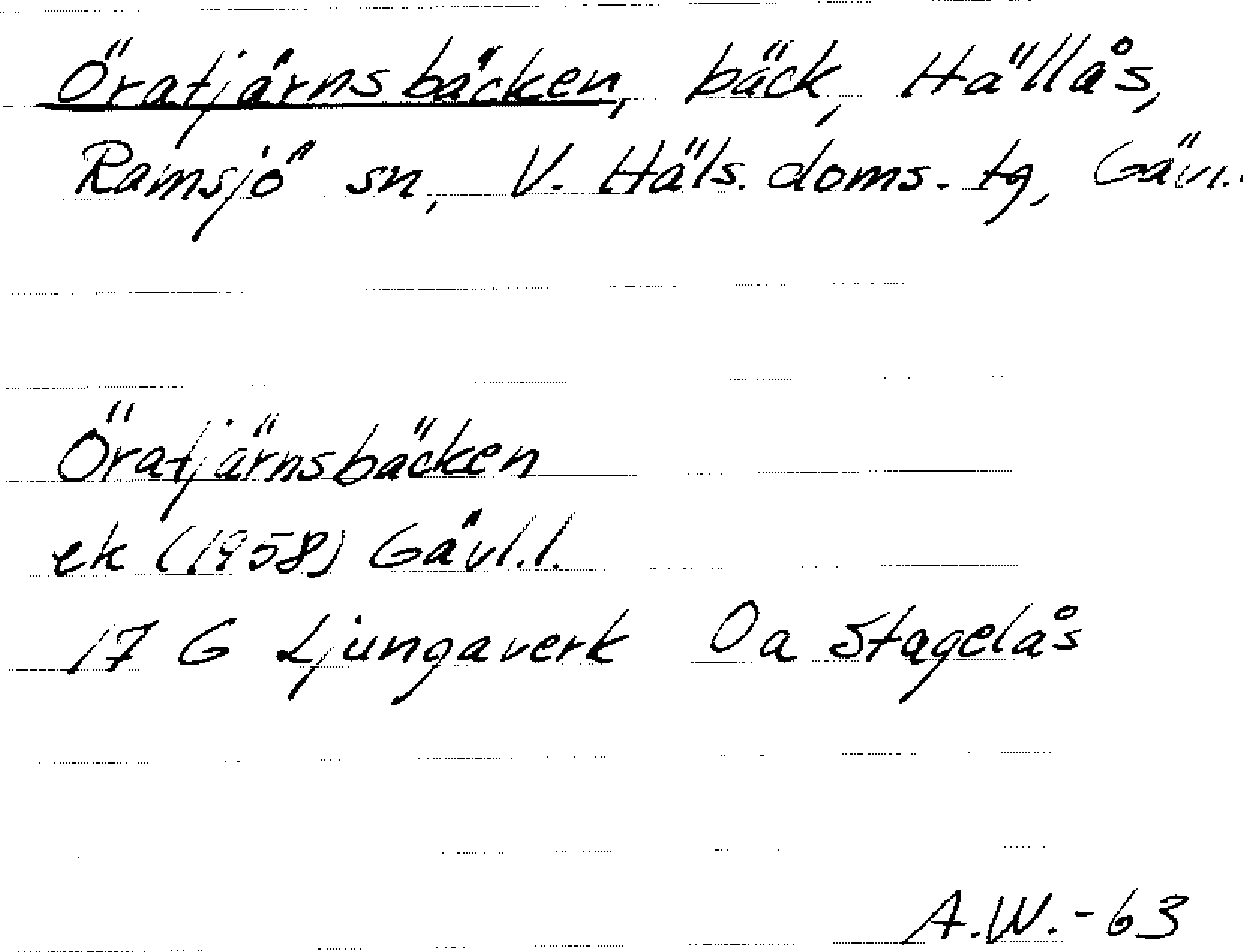 Öratjärnsbäcken, bäck, Hällås,
Ramsjö sn, V. Häls. doms. tg, Gävl.
Öratjärnsbäcken
ek (1958) Gävl.l.
17 G Ljungaverk 0a Stagelås
A.W.-63